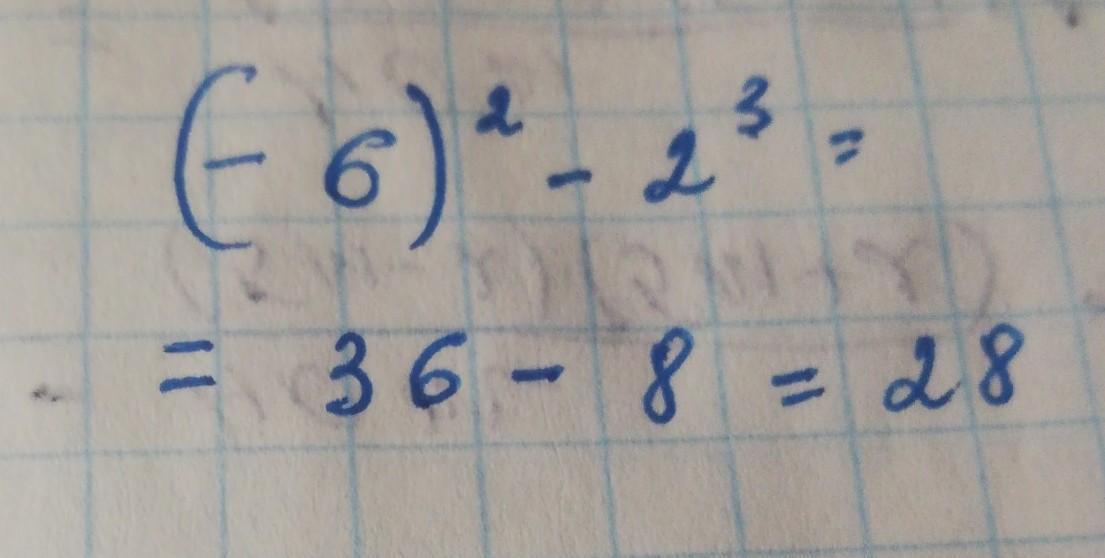 (- 6)² - 2³ =
= 36 - 8 = 28